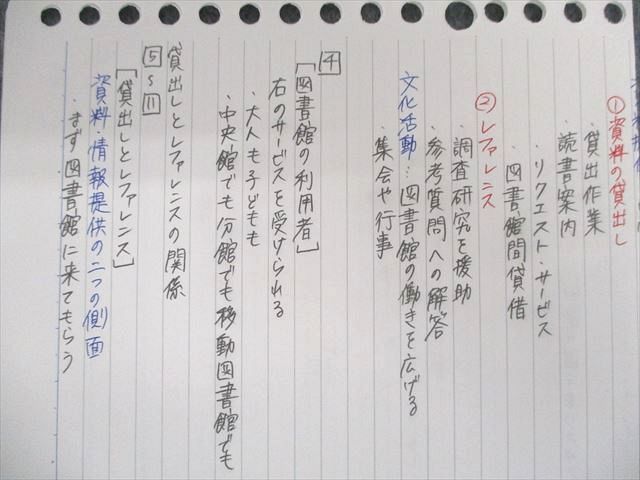 ①資料の貸出し
・貸出作業
・読書案内
・リクエスト・サービス
・図書館間貸借
②レファレンス
・調査研究を援助
・参考質問への解答
文化活動…図書館の働きを広げる
・集会や行事
4
[図書館の利用者]
右のサービスを受けられる
・大人も子どもも
・中央館でも分館でも移動図書館でも
貸出しとレファレンスの関係
5〜11
[貸出しとレファレンス]
資料・情報提供の二つの側面
・まず図書館に来てもらう